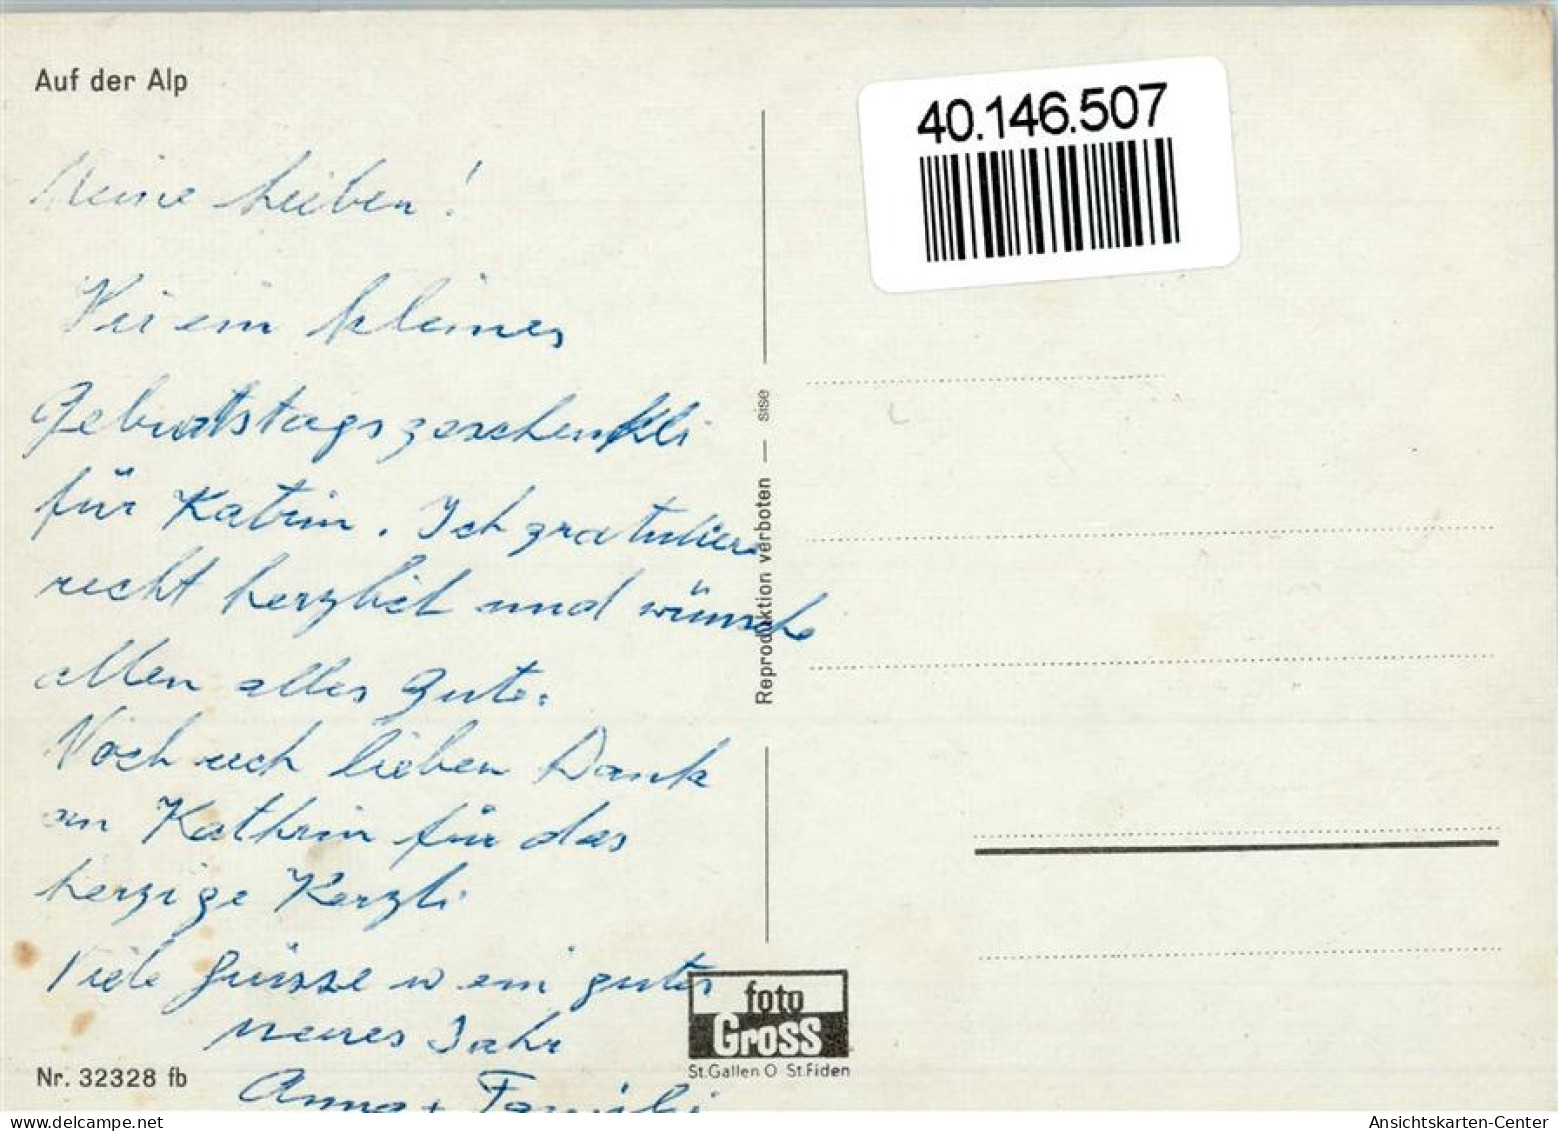 Auf der Alp
40.146.507
Meine Leiben!
ein kleines
Geburtstagsgeschenkli
für Katrin. Ich gratuliere
recht herzlich und wünsche
allen alles Gute.
Noch euch lieben Dank
an Kathrin für das
herzige Kerzli
Viele Grüsse u ein gutes
neues Jahr
Anna + Familie
Nr. 32328 fb
Reproduktion verboten — sise
foto
Gross
St.Gallen O St.Fiden
Ansichtskarten-Center